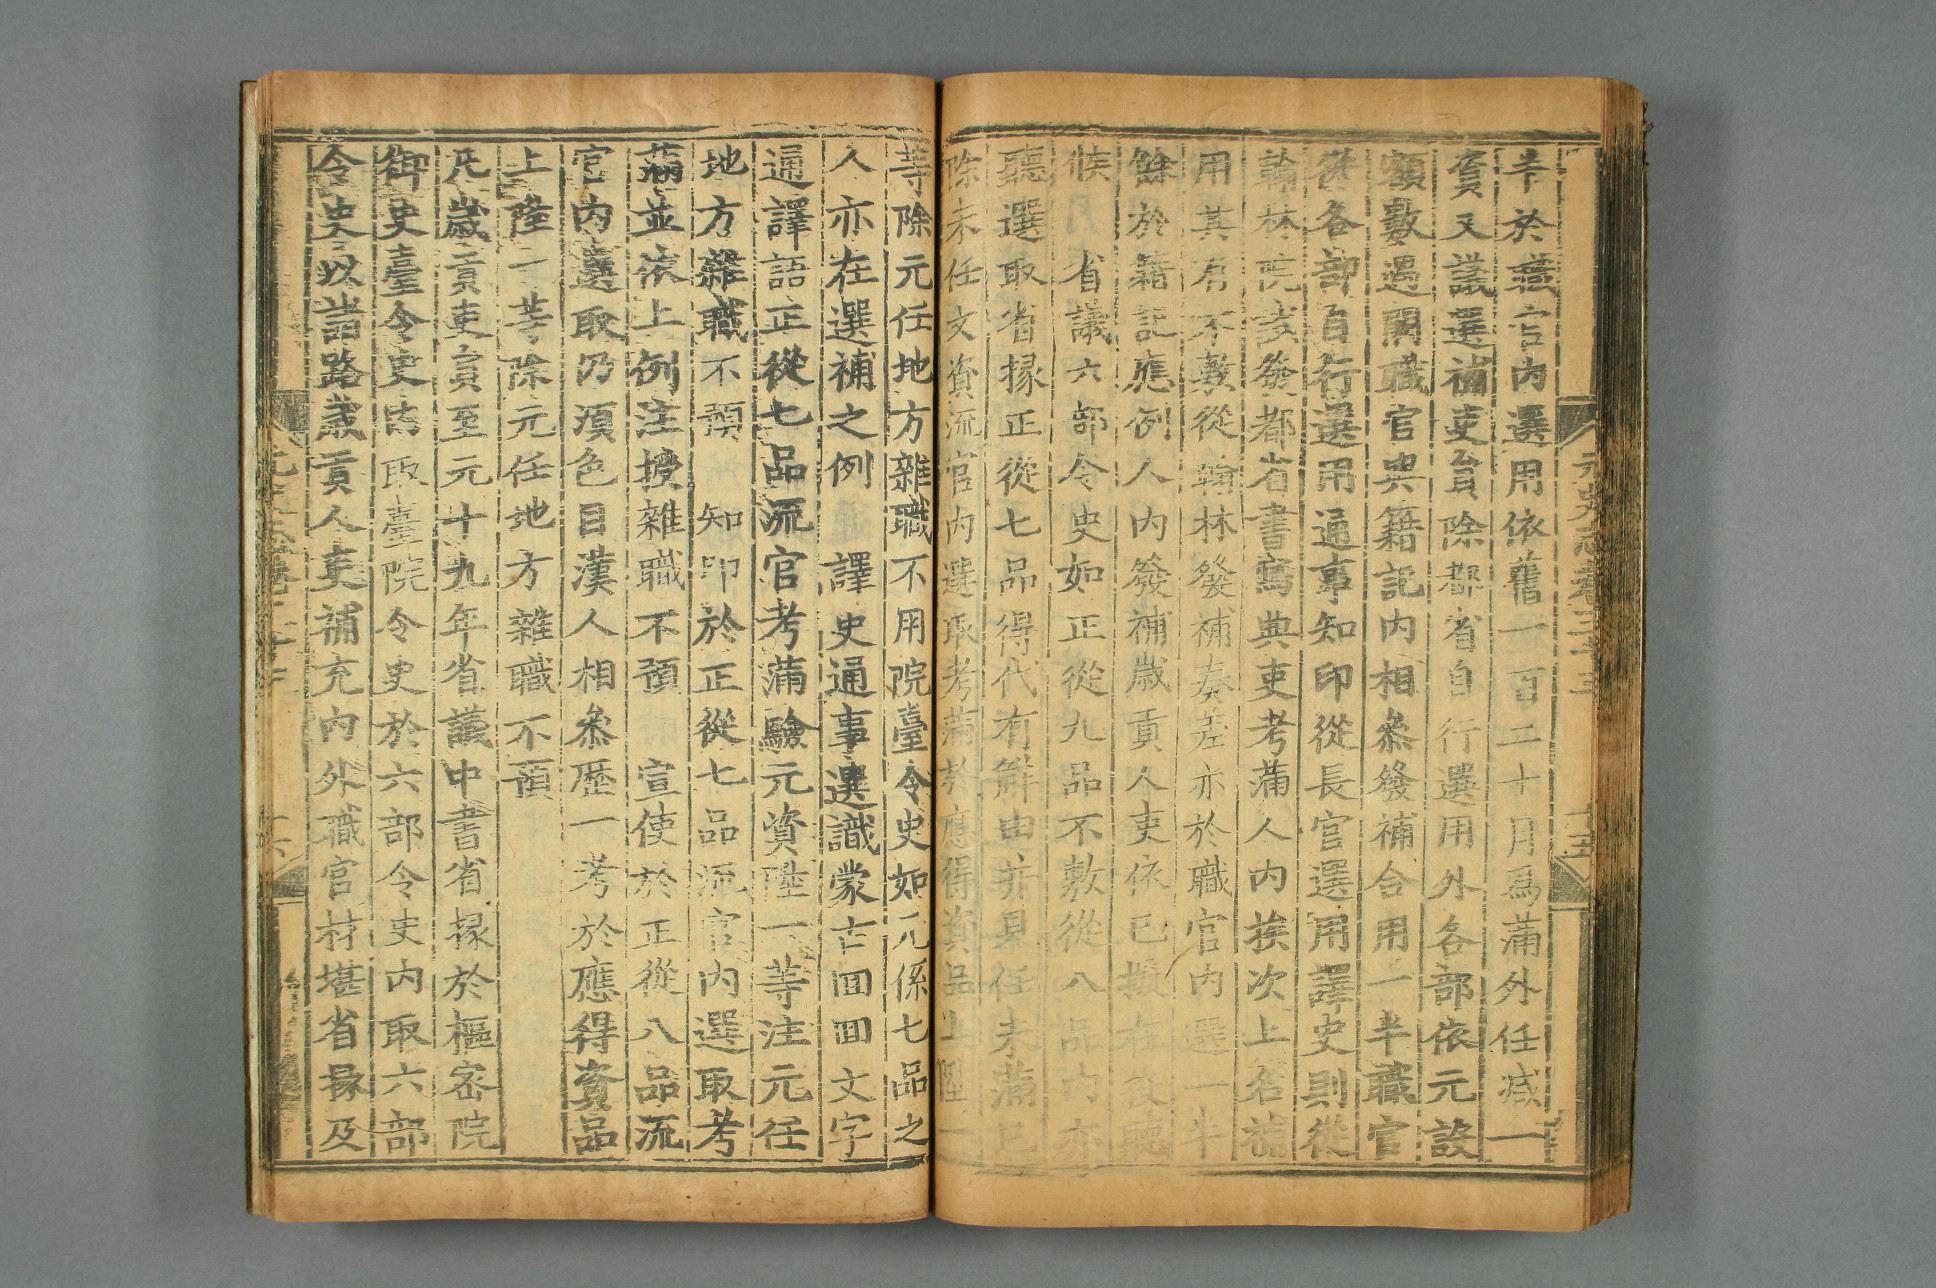 元史志卷三十三
十五
辛於燕官內選用依舊一百二十月爲滿外任減一
資又議選補吏員除都省自行選用外各部依元設
額數遇闕職官與籍記內相叅發補合用一半職官
從各部自行選用通事知印從長官選用譯史則從
翰林院考發都省書寫典吏考滿人內挨次上名補
用其有不敷從翰林發補奏差亦於職官內選一半
餘於籍記應例人內發補歲貢人吏依已擬在役聽
候 省議六部令史如正從九品不敷從八品內亦
聽選取省掾正從七品得代有解由并見任未滿已
除未任文資流官內選取考滿於應得資品上陞一
等除元任地方雜職不用院臺令史如元係七品之
人亦在選補之例 譯史通事選識蒙古回回文字
通譯語正從七品流官考滿驗元資陞一等注元任
地方雜職不預 知印於正從七品流官內選取考
滿並依上例注授雜職不預 宣使於正從八品流
官內選取仍須色目漢人相叅歷一考於應得資品
上陞一等除元任地方雜職不預
凡歲貢吏員至元十九年省議中書省掾於樞密院
御史臺令史內取臺院令史於六部令史內取六部
令史以諸路歲貢人吏補充內外職官材堪省掾及